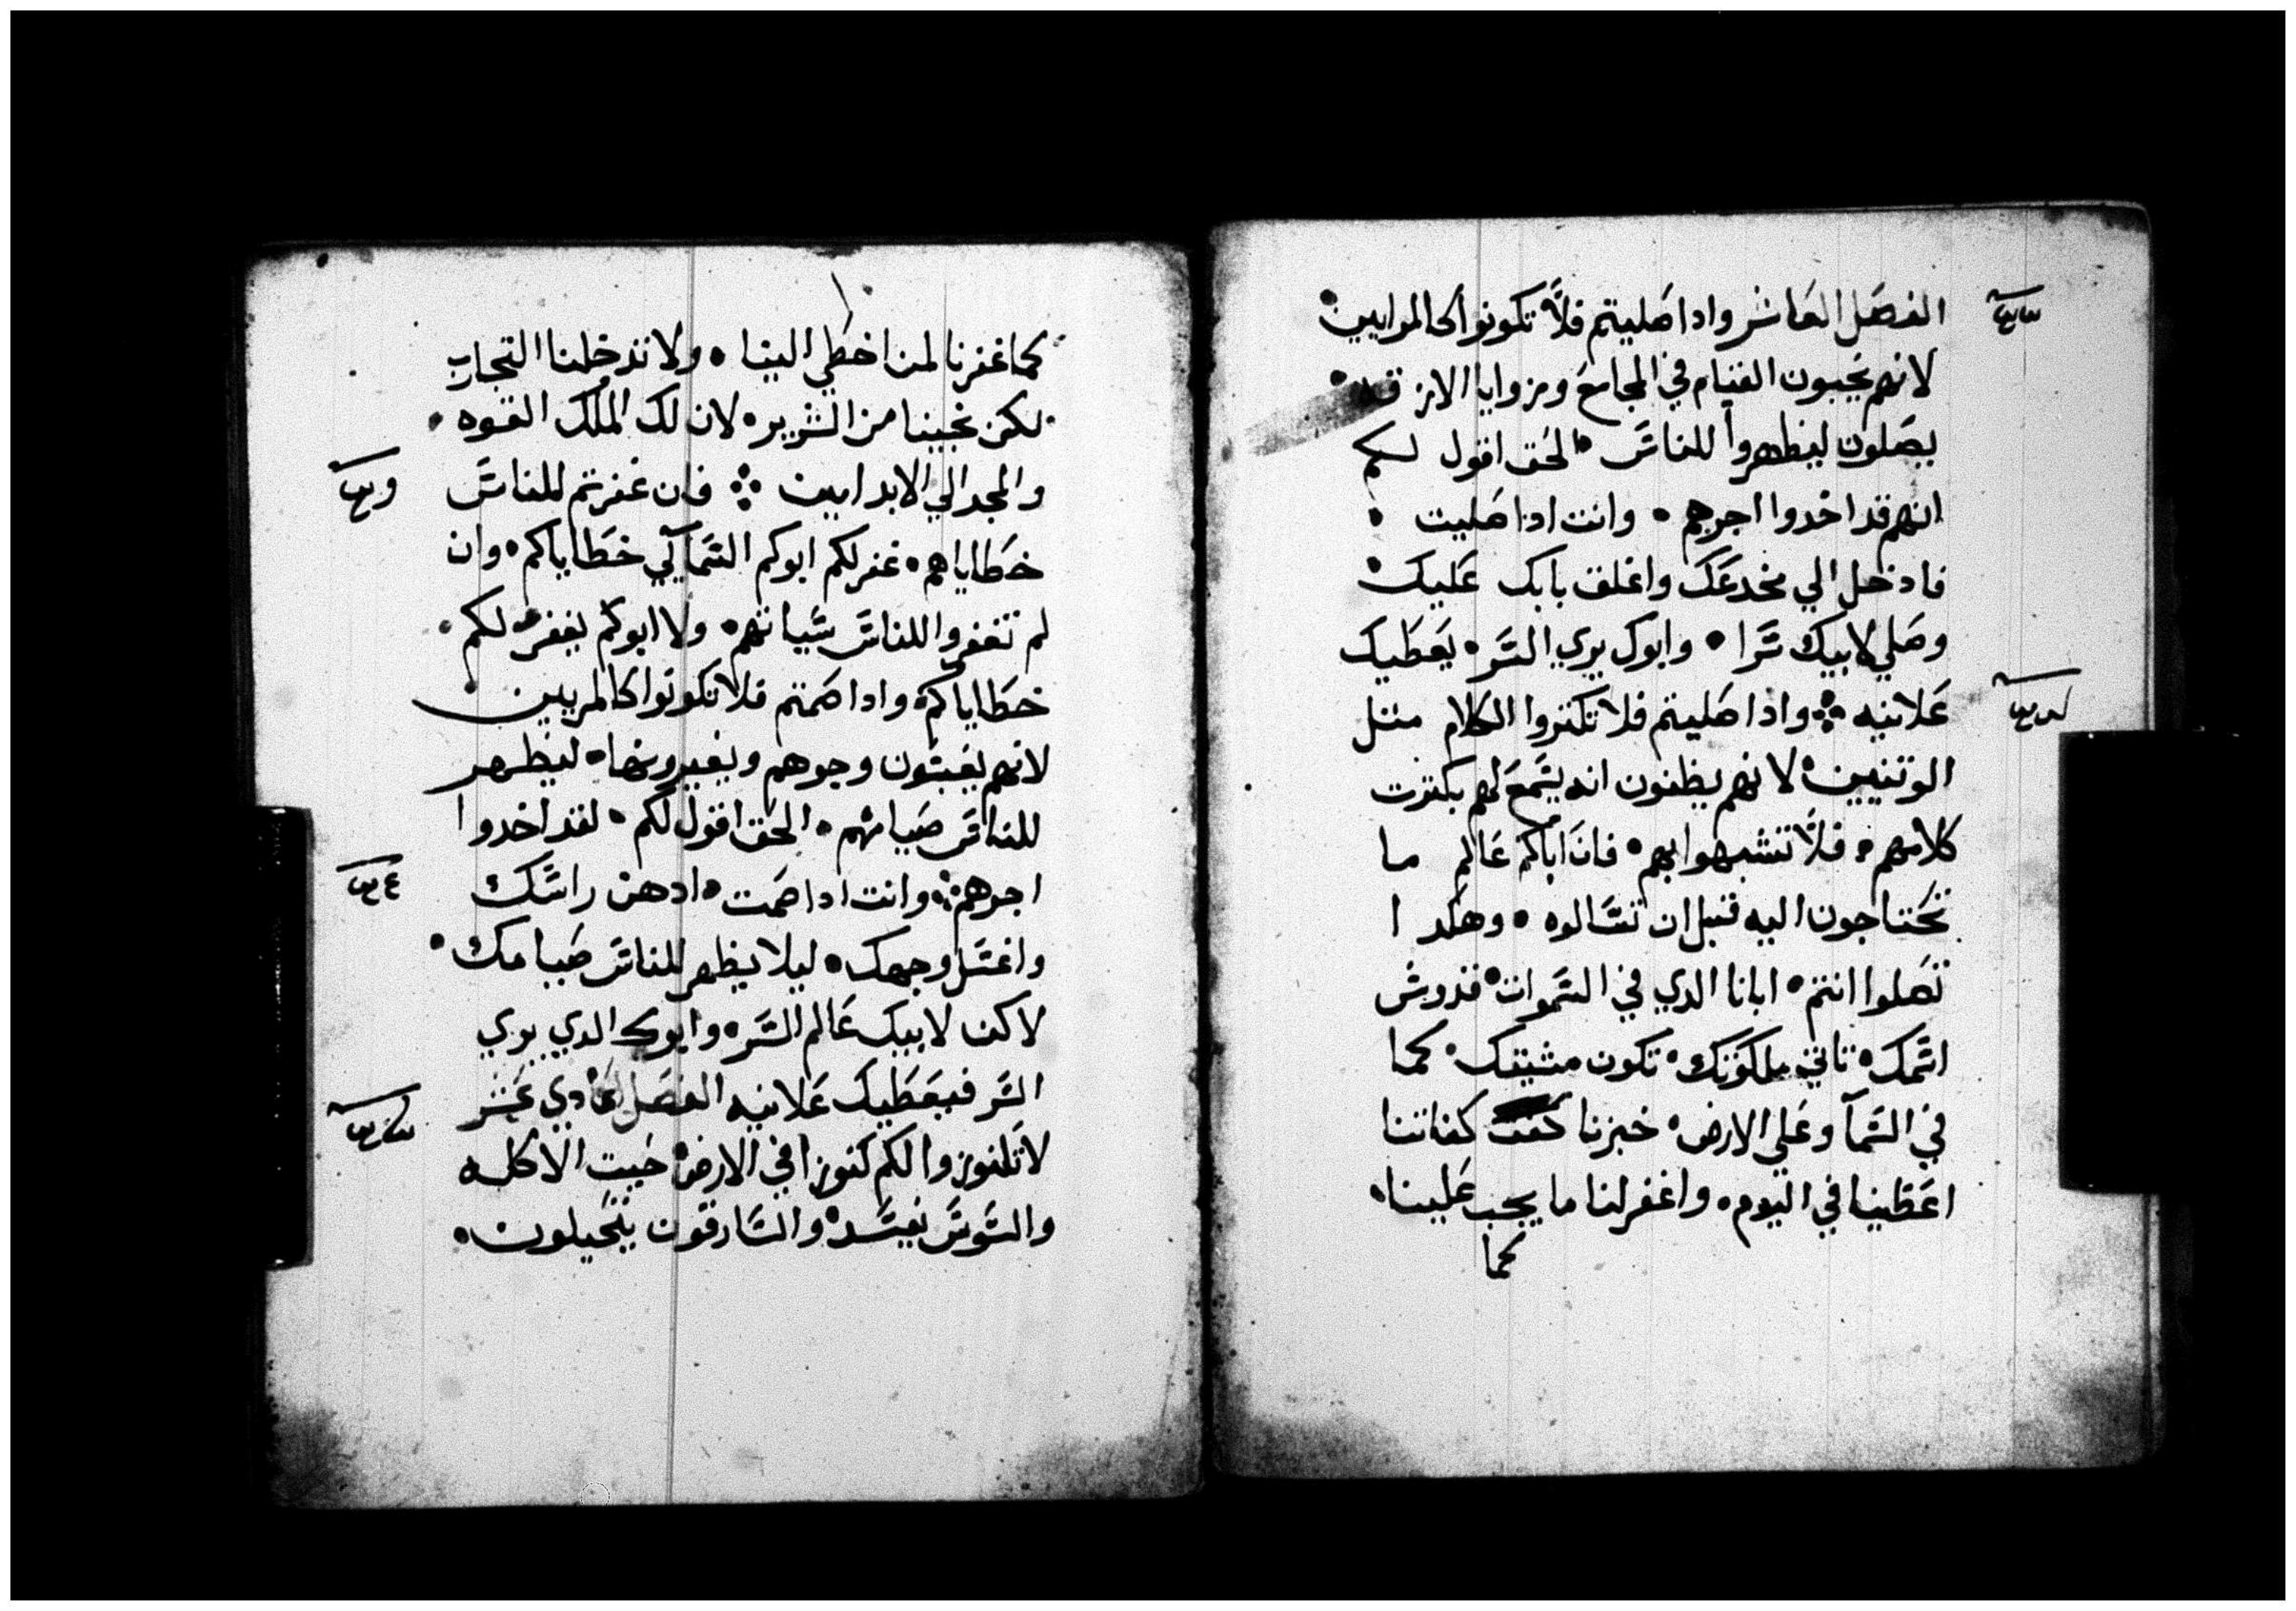 الفصل العاشر واذا صليتم فلا تكونوا كالمرايين
لانهم يحبون القيام في المجامع وزوايا الازقه
يصلون ليظهروا للناس الحق اقول لكم
انهم قد اخدوا اجرهم وانت اذا صليت
فادخل الي مخدعك واغلق بابك عليك
وصلي لابيك سرا وابوك يري السر يعطيك
علانيه واذا صليتم فلا تكتروا الكلام متل
الوتنيين لانهم يظنون انه يسمع لهم بكترت
كلامهم فلا تتشبهوا بهم فان اباكم عالم ما
تحتاجون اليه قبل ان تسالوه وهكدا
تصلوا انتم ابانا الدي في السموات قدوس
اسمك تاتي ملكوتك تكون مشيتك كما
في السمآ وعلي الارض خبزنا كفاتنا
اعطينا في اليوم واغفر لنا ما يجب علينا
كما
كما غفرنا لمن اخطي الينا ولا تدخلنا التجارب
لكن نجينا من الشرير لان لك الملك القوه
والمجد الي الابد امين فان غفرتم للناس
خطاياهم غفر لكم ابوكم السمآلي خطاياكم وان
لم تغفروا للناس سياتهم ولا ابوكم يغفر لكم
خطاياكم واذا صمتم فلا تكونوا كالمريين
لانهم يعبسون وجوههم ويغيرونها ليظهر
للناس صيامهم الحق اقول لكم لقد اخدوا
اجرهم وانت اذا صمت ادهن راسك
واغسل وجهك ليلا يظهر للناس صيامك
لاكن لابيك عالم السر وابوك الدي يري
السر فيعطيك علانيه الفصل الحادي عشر
لا تكنوزوا لكم كنوزا في الارض حيت الاكله
والسوس يفسد والسارقون يتحيلون